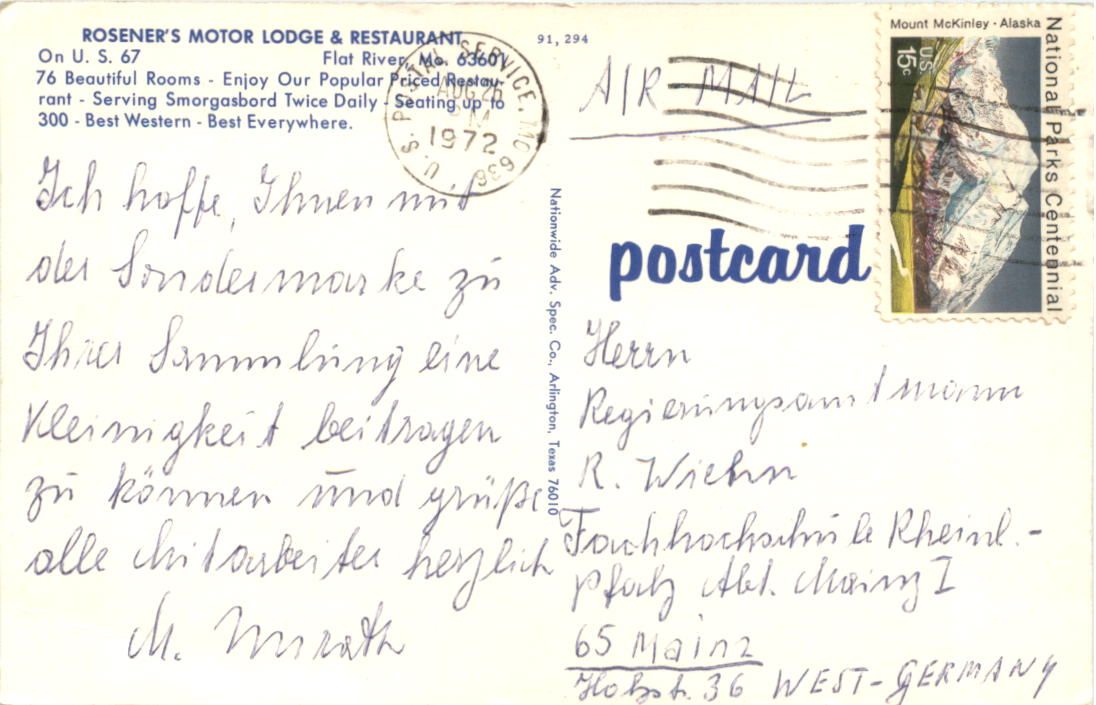 ROSENER'S MOTOR LODGE & RESTAURANT
On U. S. 67 Flat River, Mo. 63601
76 Beautiful Rooms - Enjoy Our Popular Priced Restau-
rant - Serving Smorgasbord Twice Daily - Seating up to
300 - Best Western - Best Everywhere.
91, 294
U. S. POSTAL SERVICE, MO 636
AUG 26
PM
1972
AIR MAIL
Mount McKinley - Alaska
National Parks Centennial
U.S. 15c
postcard
Nationwide Adv. Spec. Co., Arlington, Texas 76010
Ich hoffe, Ihnen mit
der Sondermarke zu
Ihrer Sammlung eine
Kleinigkeit beitragen
zu können und grüße
alle Mitarbeiter herzlich
M.
Herrn
Regierungsamtmann
R. Wiehn
Fachhochschule Rheinl.-
Pfalz Abt. Mainz I
65 Mainz
Holzstr. 36 WEST-GERMANY